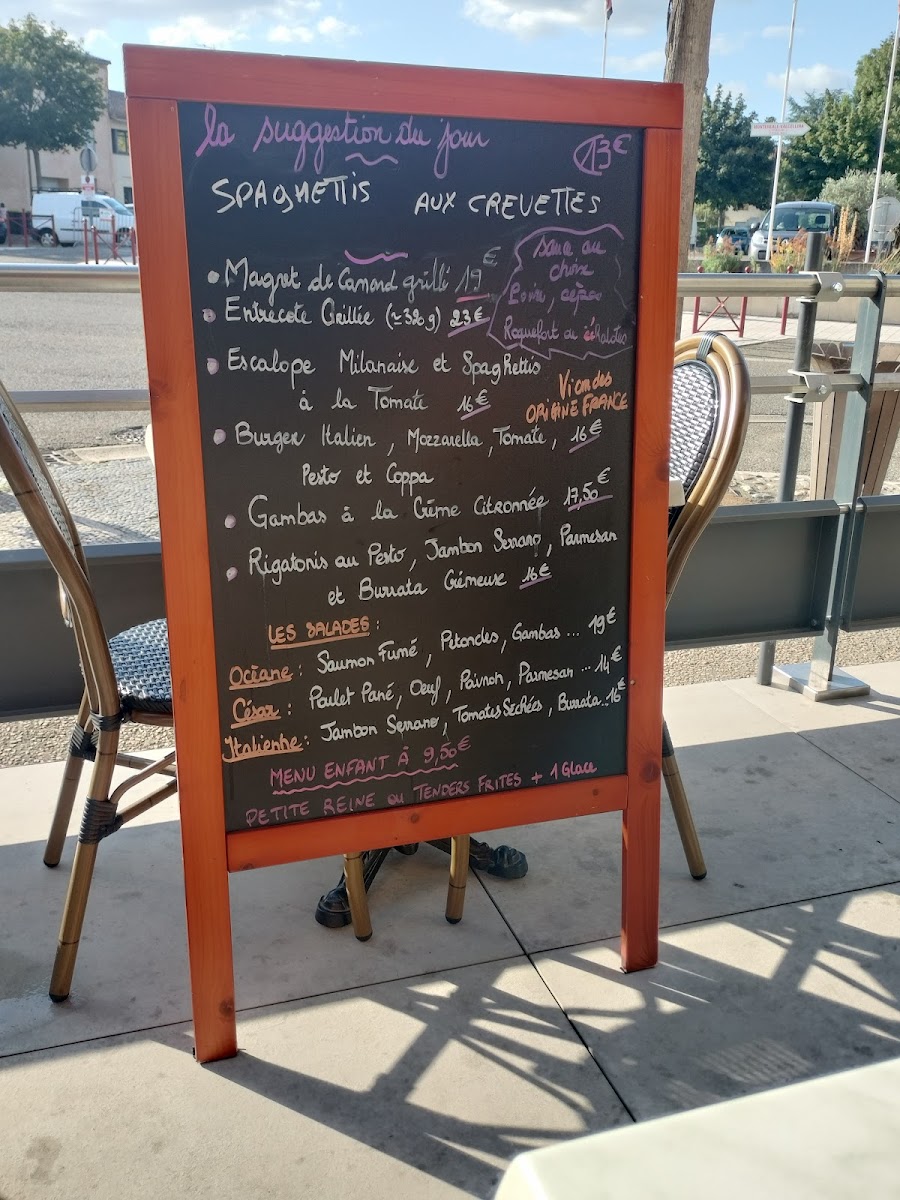 la suggestion du jour 13€
SPAGHETTIS AUX CREVETTES
• Magret de Canard grillé 19€
• Entrecote Grillée (≃320g) 23€
sauce au
choix
Poivre, cèpes
Roquefort ou échalotes
• Escalope Milanaise et Spaghettis
à la Tomate 16€
Viandes
ORIGINE FRANCE
• Burger Italien, Mozzarella, Tomate, 16€
Pesto et Coppa
• Gambas à la Crème Citronnée 17,50€
• Rigatonis au Pesto, Jambon Serrano, Parmesan
et Burrata Crémeuse 16€
LES SALADES :
Océane : Saumon Fumé, Pétoncles, Gambas ... 19€
César : Poulet Pané, Oeuf, Poivron, Parmesan ... 14€
Italienne : Jambon Serrano, Tomates Séchées, Burrata.. 16€
MENU ENFANT À 9,50€
PETITE REINE ou TENDERS FRITES + 1 Glace